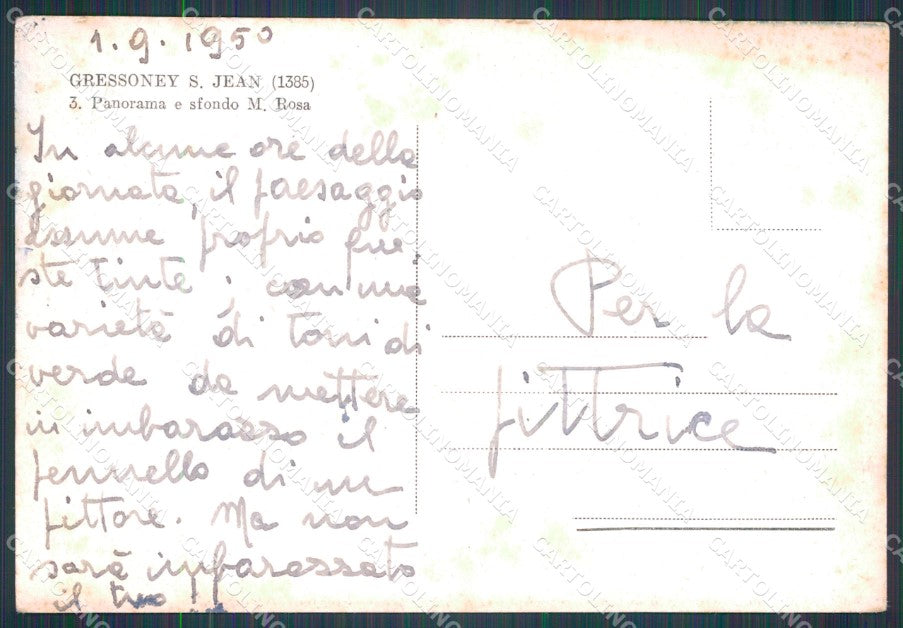 1.9.1950
GRESSONEY S. JEAN (1385)
3. Panorama e sfondo M. Rosa
In alcune ore della
giornata, il paesaggio
assume proprio que
ste tinte, con una
varietà di toni di
verde da mettere
in imbarazzo il
pennello di un
pittore. Ma non
sarà imbarazzato
il tuo!
Per la
pittrice
CARTOLINOMANIA